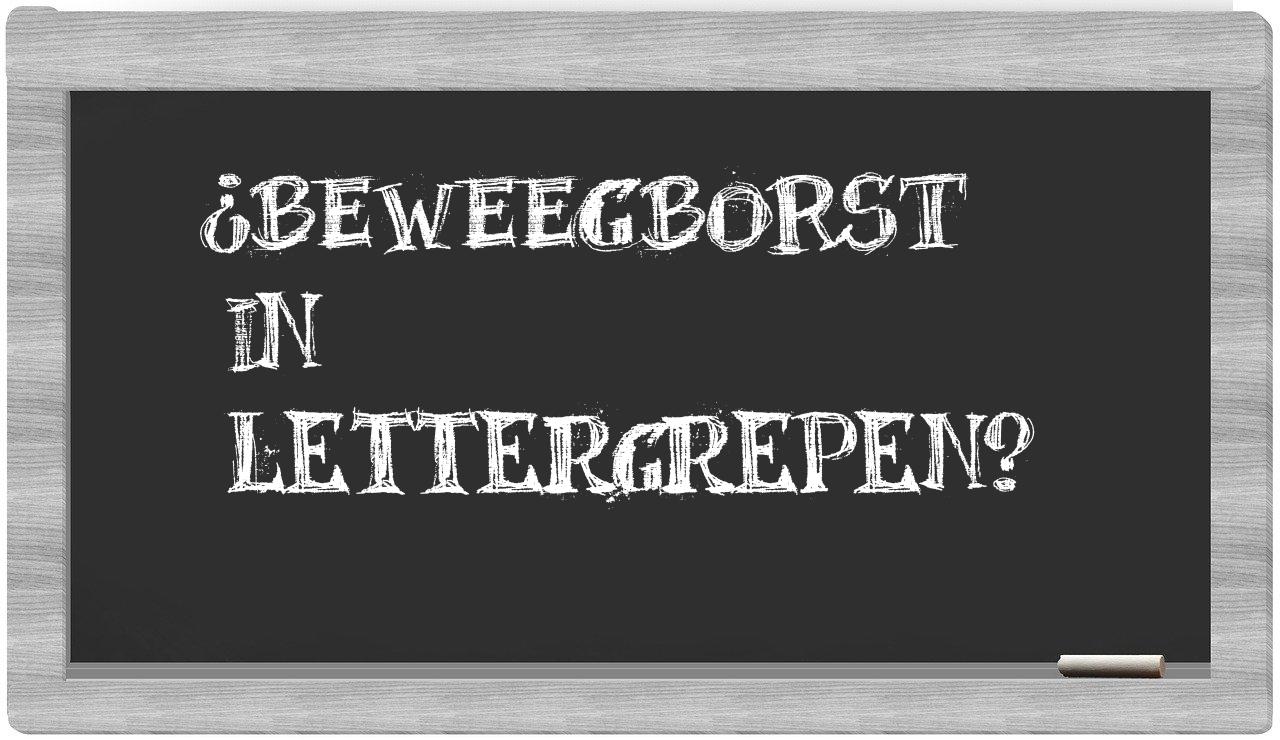 ¿BEWEEGBORST
IN
LETTERGREPEN?